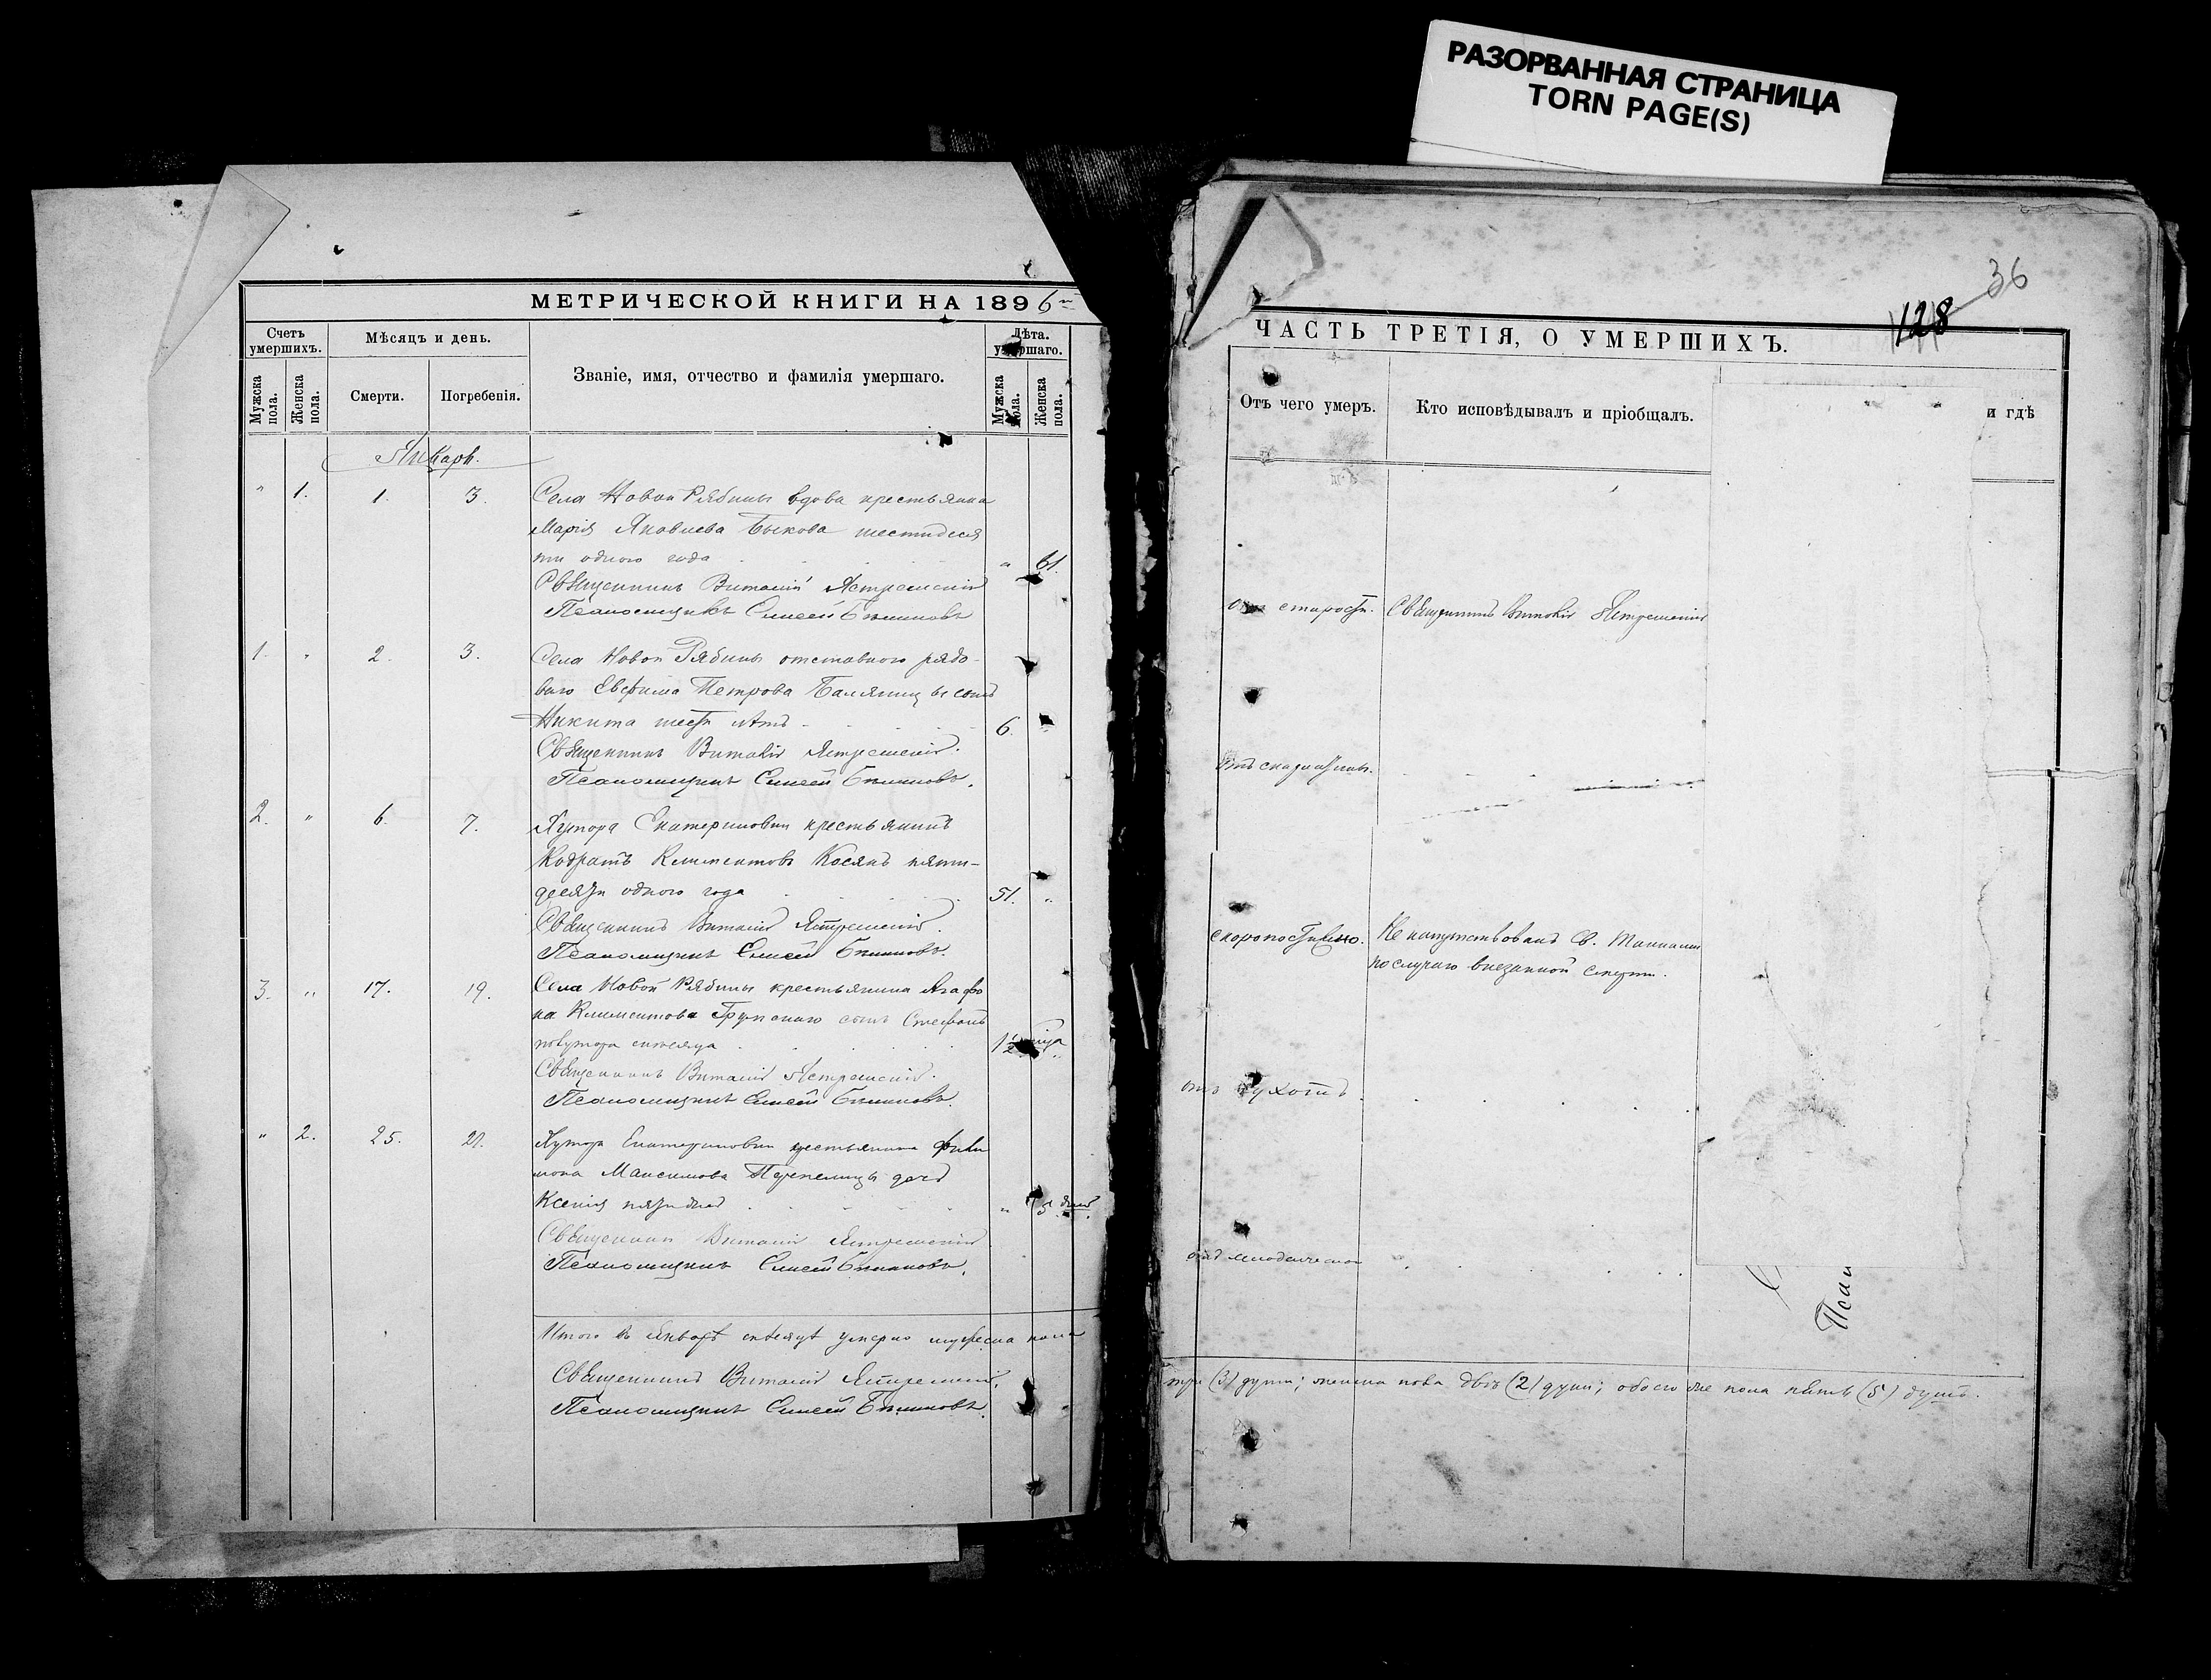 РАЗОРВАННАЯ СТРАНИЦА
TORN PAGE(S)
МЕТРИЧЕСКОЙ КНИГИ НА 1896
Счетъ умершихъ.
Мѣсяцъ и день.
Званіе, имя, отчество и фамилія умершаго.
Лѣта. умершаго.
Мужска пола.
Женска пола.
Смерти.
Погребенія.
Мужска пола.
Женска пола.
Январь.
" 1. 1. 3. Села Новой Рябины вдова крестьянка
Марія Яковлева Быкова шестидеся
ти одного года " 61.
Священникъ Виталій Ястремскій
Псаломщикъ Елисей
1. " 2. 3. Села Новой Рябины отставного рядо-
ваго Евфима Петрова сынъ
Никита шести лѣтъ 6. "
Священникъ Виталій Ястремскій.
Псаломщикъ Елисей
2. " 6. 7. Хутора Екатериновки крестьянинъ
Кодратъ Климентовъ Косякъ пяти-
десяти одного года 51. "
Священникъ Виталій Ястремскій.
Псаломщикъ Елисей
3. " 17. 19. Села Новой Рябины крестьянина Агафо
на Климентова сынъ Стефанъ
полутора мѣсяца 1½ "
Священникъ Виталій Ястремскій.
Псаломщикъ Елисей
" 2. 25. 27. Хутора Екатериновки крестьянина Фили
мона Максимова Перепелицы дочь
Ксенія пяти дней " 5 дней.
Священникъ Виталій Ястремскій
Псаломщикъ Елисей
Итого въ Январѣ мѣсяцѣ умерло мужеска пола
Священникъ Виталій Ястремскій.
Псаломщикъ Елисей
36
128
ЧАСТЬ ТРЕТІЯ, О УМЕРШИХЪ.
Отъ чего умеръ.
Кто исповѣдывалъ и пріобщалъ.
и гдѣ
отъ старости. Священникъ Виталій Ястремскій
Отъ скарлатины.
скоропостижно. Не напутствованъ Св. Тайнами
по случаю внезапной смерти.
отъ сухотъ.
отъ младенческой
Псал
три (3) души; женска пола двѣ (2) души; обоего же пола пять (5) душъ.